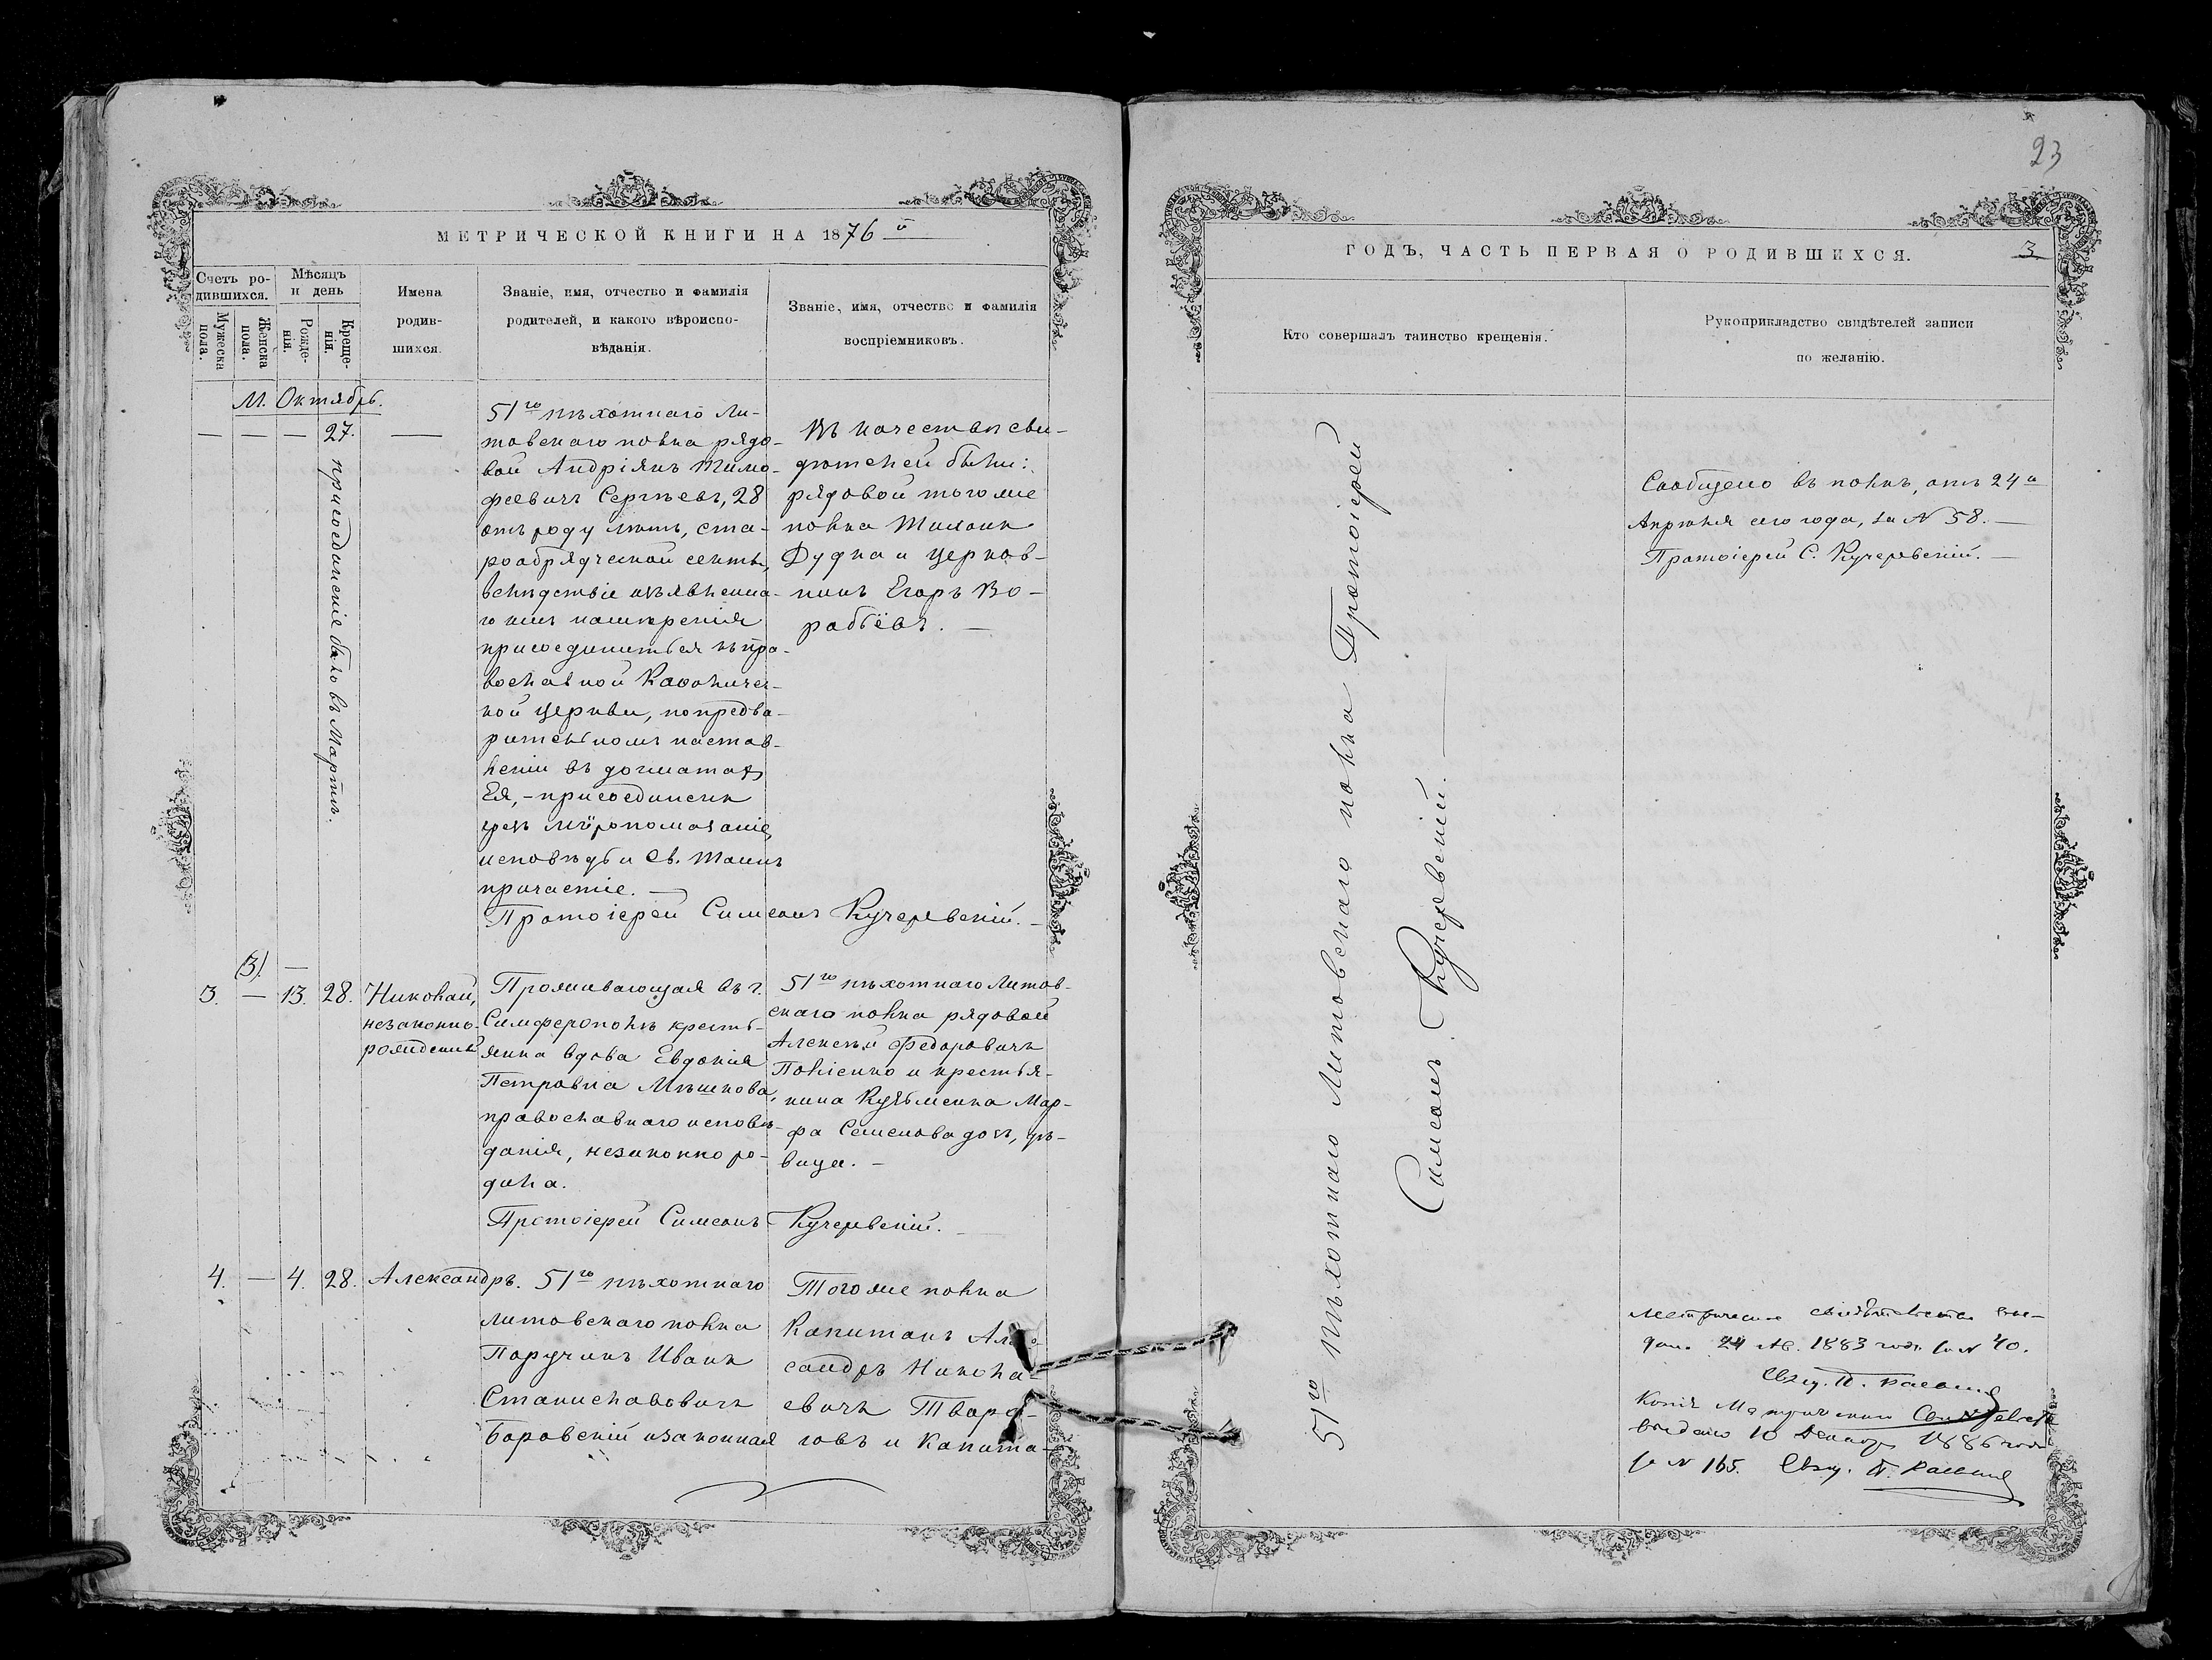 МЕТРИЧЕСКОЙ КНИГИ НА 1876 й
Счетъ ро-
дившихся.
Мужеска
пола.
Женска
пола.
Мѣсяцъ
и день
Рожде-
нія.
Креще-
нія.
Имена
родив-
шихся.
Званіе, имя, отчество и фамилія
родителей, и какого вѣроиспо-
вѣданія.
Званіе, имя, отчество и фамилія
воспріемниковъ.
М. Октябрь.
— — — 27. —
присоединеніе было въ Мартѣ.
51го пѣхотнаго Ли-
товскаго полка рядо-
вой Андріянъ Тимо-
феевичъ Сергѣевъ, 28
отъ роду лѣтъ, ста-
рообрядческой секты,
вслѣдствіе изъявленна-
го имъ намѣренія
присоединиться къ пра-
вославной Каѳоличес-
кой церкви, по предва-
рительномъ настав-
леніи въ догматахъ
Ея, - присоединенъ
чрезъ мѵропомазаніе,
исповѣдь и Св. Таинъ
причастіе. —
Протоіерей Симеонъ Кучеревскій. —
Въ качествѣ сви-
дѣтелей были:
рядовой того же
полка
Дудка и церков-
никъ Егоръ Во-
робьёвъ. —
(3).
3. — 13. 28. Николай,
незаконно-
рожденный
Проживающая въ г.
Симферополѣ кресть-
янка вдова Евдокія
Петровна Мѣшкова,
православнаго исповѣ-
данія, незаконно ро-
дила.
51го пѣхотнаго Литов-
скаго полка рядовой
Алексѣй Федоровичъ
Полѣенко и крестья-
нина Кузьменка Мар-
фа Семенова дочь, дѣ-
вица. —
Протоіерей Симеонъ Кучеревскій. —
4. — 4. 28. Александръ.
51го пѣхотнаго
литовскаго полка
Поручикъ Иванъ
Станиславовичъ
Боровскій и законная
Того же полка
Капитанъ Алек
сандръ Никола-
евичъ Твора-
говъ и Капита-
23
ГОДЪ, ЧАСТЬ ПЕРВАЯ О РОДИВШИХСЯ.
3
Кто совершалъ таинство крещенія.
Рукоприкладство свидѣтелей записи
по желанію.
51го пѣхотнаго Литовскаго полка Протоіерей
Симеонъ Кучеревскій. —
Сообщено въ полкъ, отъ 24го
Апрѣля сего года, за N 58. —
Протоіерей С. Кучеревскій. —
Метрическое свидѣтельство вы-
дано 24 1883 года за N 40.
Свящ. П.
Копія Метрическаго
выдано 10 Декабря 1886 года
за N 165. Свящ. П.